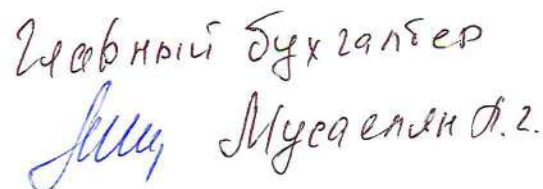 Главный бухгалтер
Мусаелян А.г.